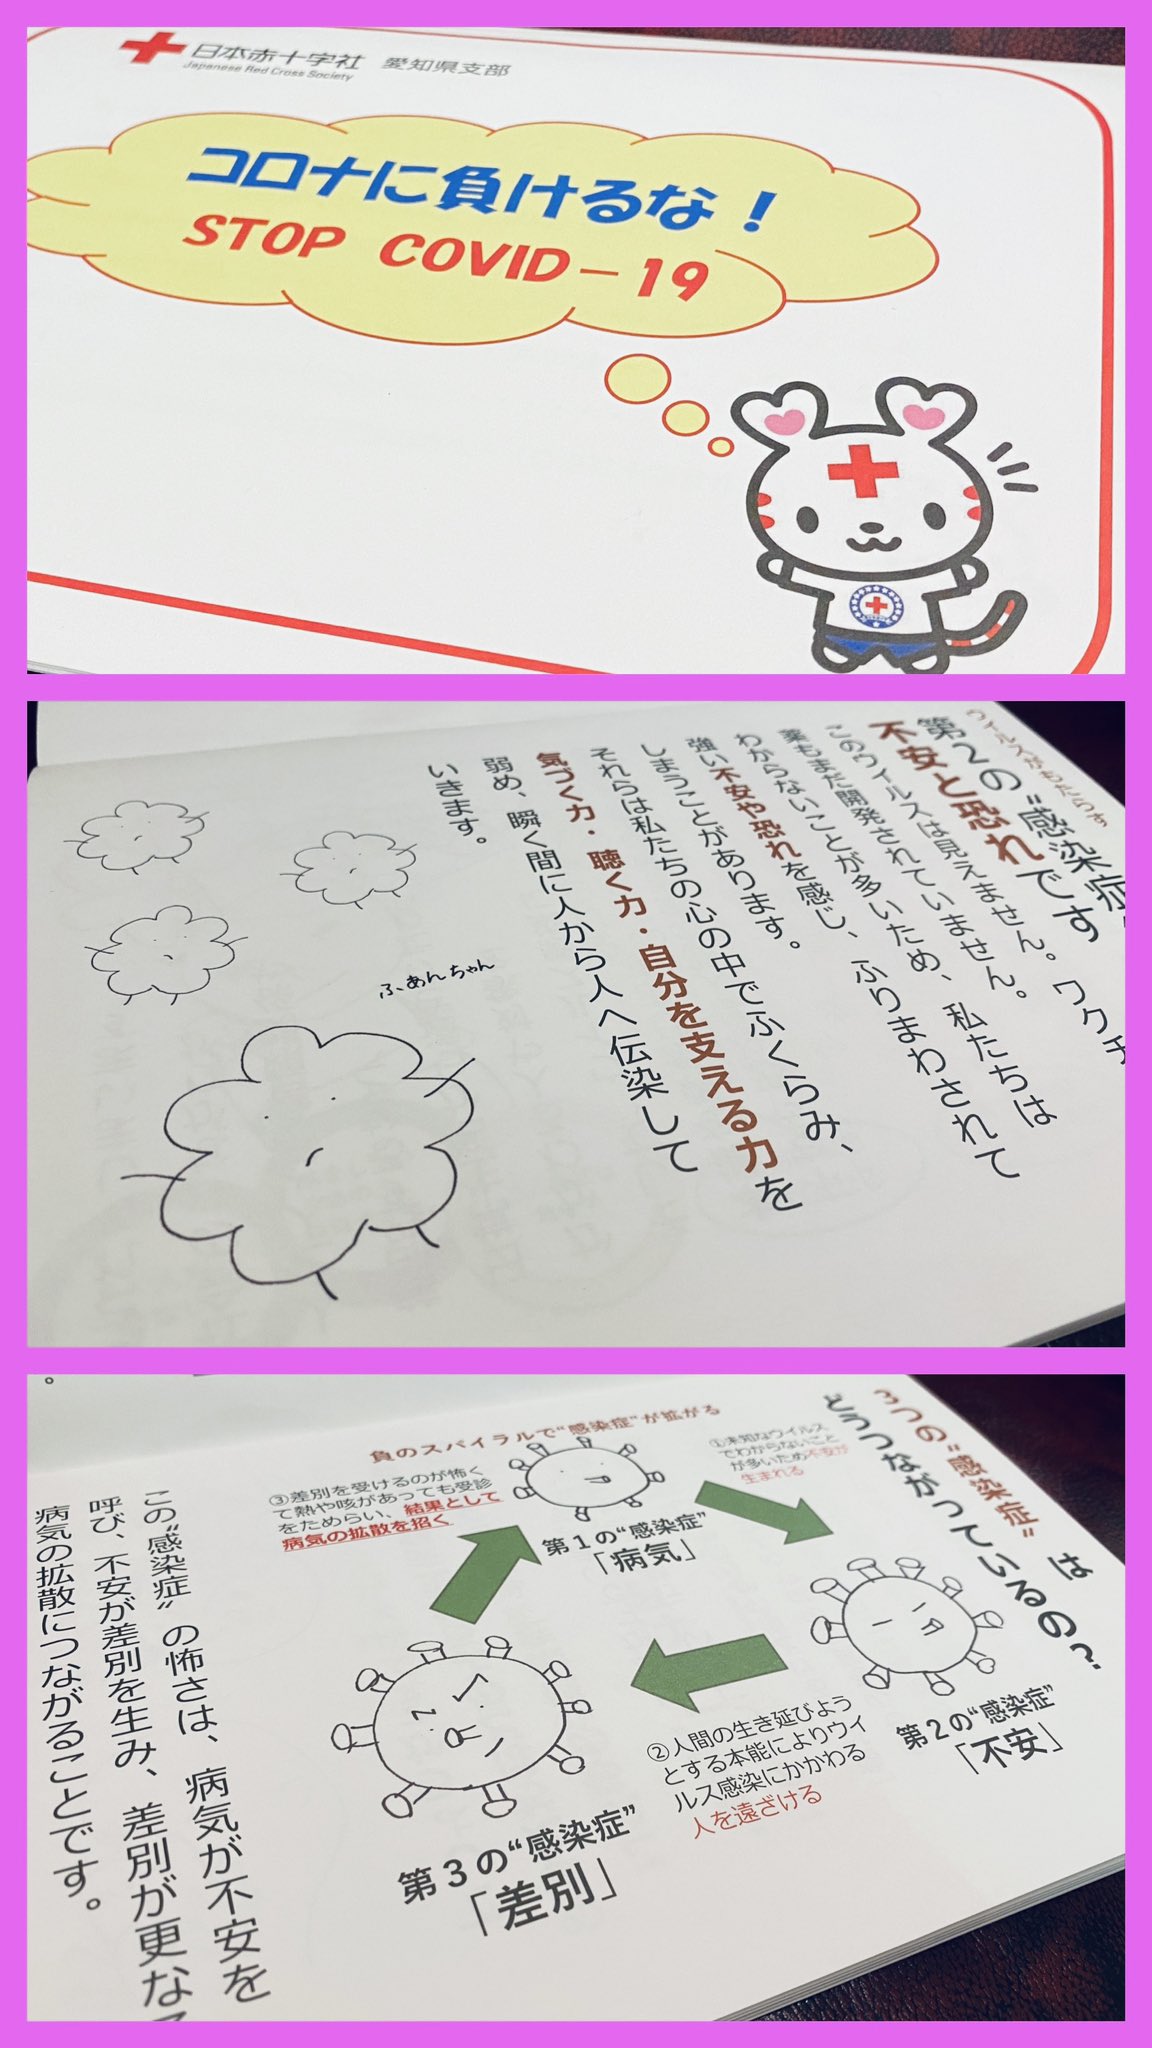 日本赤十字社 愛知県支部
Japanese Red Cross Society
コロナに負けるな！
STOP COVID－19
ウィルスがもたらす
第２の“感染症”
不安と恐れです
このウィルスは見えません。ワクチ
薬もまだ開発されていません。
わからないことが多いため、私たちは
強い不安や恐れを感じ、ふりまわされて
しまうことがあります。
それらは私たちの心の中でふくらみ、
気づく力・聴く力・自分を支える力を
弱め、瞬く間に人から人へ伝染して
いきます。
ふあんちゃん
３つの“感染症”は
どうつながっているの？
負のスパイラルで“感染症”が拡がる
①未知なウイルス
でわからないこと
が多いため不安が
生まれる
第１の“感染症”
「病気」
第２の“感染症”
「不安」
②人間の生き延びよう
とする本能によりウイ
ルス感染にかかわる
人を遠ざける
第３の“感染症”
「差別」
③差別を受けるのが怖く
て熱や咳があっても受診
をためらい、結果として
病気の拡散を招く
この“感染症”の怖さは、病気が不安を
呼び、不安が差別を生み、差別が更なる
病気の拡散につながることです。